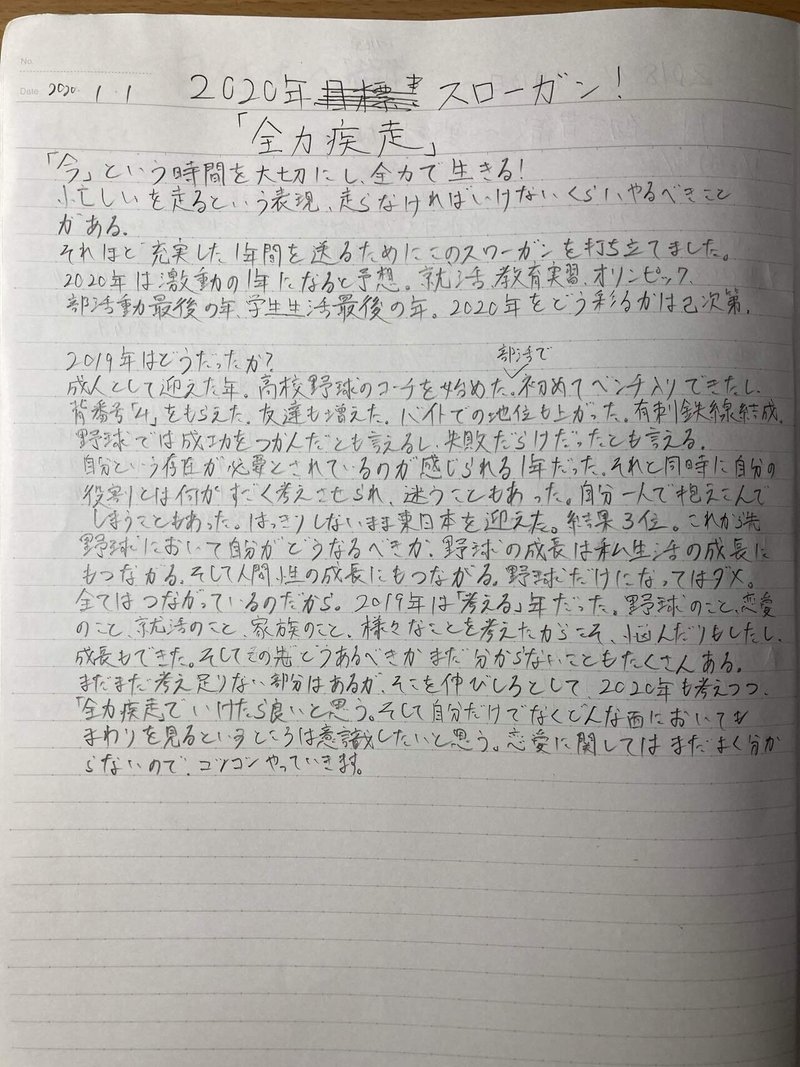 No.
Date 2020 1 1
2020年 スローガン!
「全力疾走」
「今」という時間を大切にし、全力で生きる!
忙しいを走るという表現、走らなければいけないくらい、やるべきこと
がある。
それほど充実した1年間を送るためにこのスローガンを打ち立てました。
2020年は激動の1年になると予想。就活、教育実習、オリンピック、
部活動最後の年、学生生活最後の年。2020年をどう彩るかは己次第。
2019年はどうだったか?
部活で
成人として迎えた年。高校野球のコーチを始めた。初めてベンチ入りできたし、
背番号「4」をもらえた。友達も増えた。バイトでの地位も上がった。有刺鉄線結成。
野球では成功をつかんだとも言えるし、失敗だらけだったとも言える。
自分という存在が必要とされているのが感じられる1年だった。それと同時に自分の
役割とは何かすごく考えさせられ、迷うこともあった。自分一人で抱えこんで
しまうこともあった。はっきりしないまま東日本を迎えた。結果3位。これから先
野球において自分がどうなるべきか。野球の成長は私生活の成長に
もつながる。そして人間性の成長にもつながる。野球だけになってはダメ。
全てはつながっているのだから。2019年は「考える」年だった。野球のこと、恋愛
のこと、就活のこと、家族のこと、様々なことを考えたからこそ、悩んだりもしたし、
成長もできた。そしてその先どうあるべきかまだ分からないこともたくさんある。
まだまだ考え足りない部分はあるが、そこを伸びしろとして、2020年も考えつつ、
「全力疾走」でいけたら良いと思う。そして自分だけでなくどんな面においても
まわりを見るというところは意識したいと思う。恋愛に関してはまだよく分か
らないので、コツコツやっていきます。